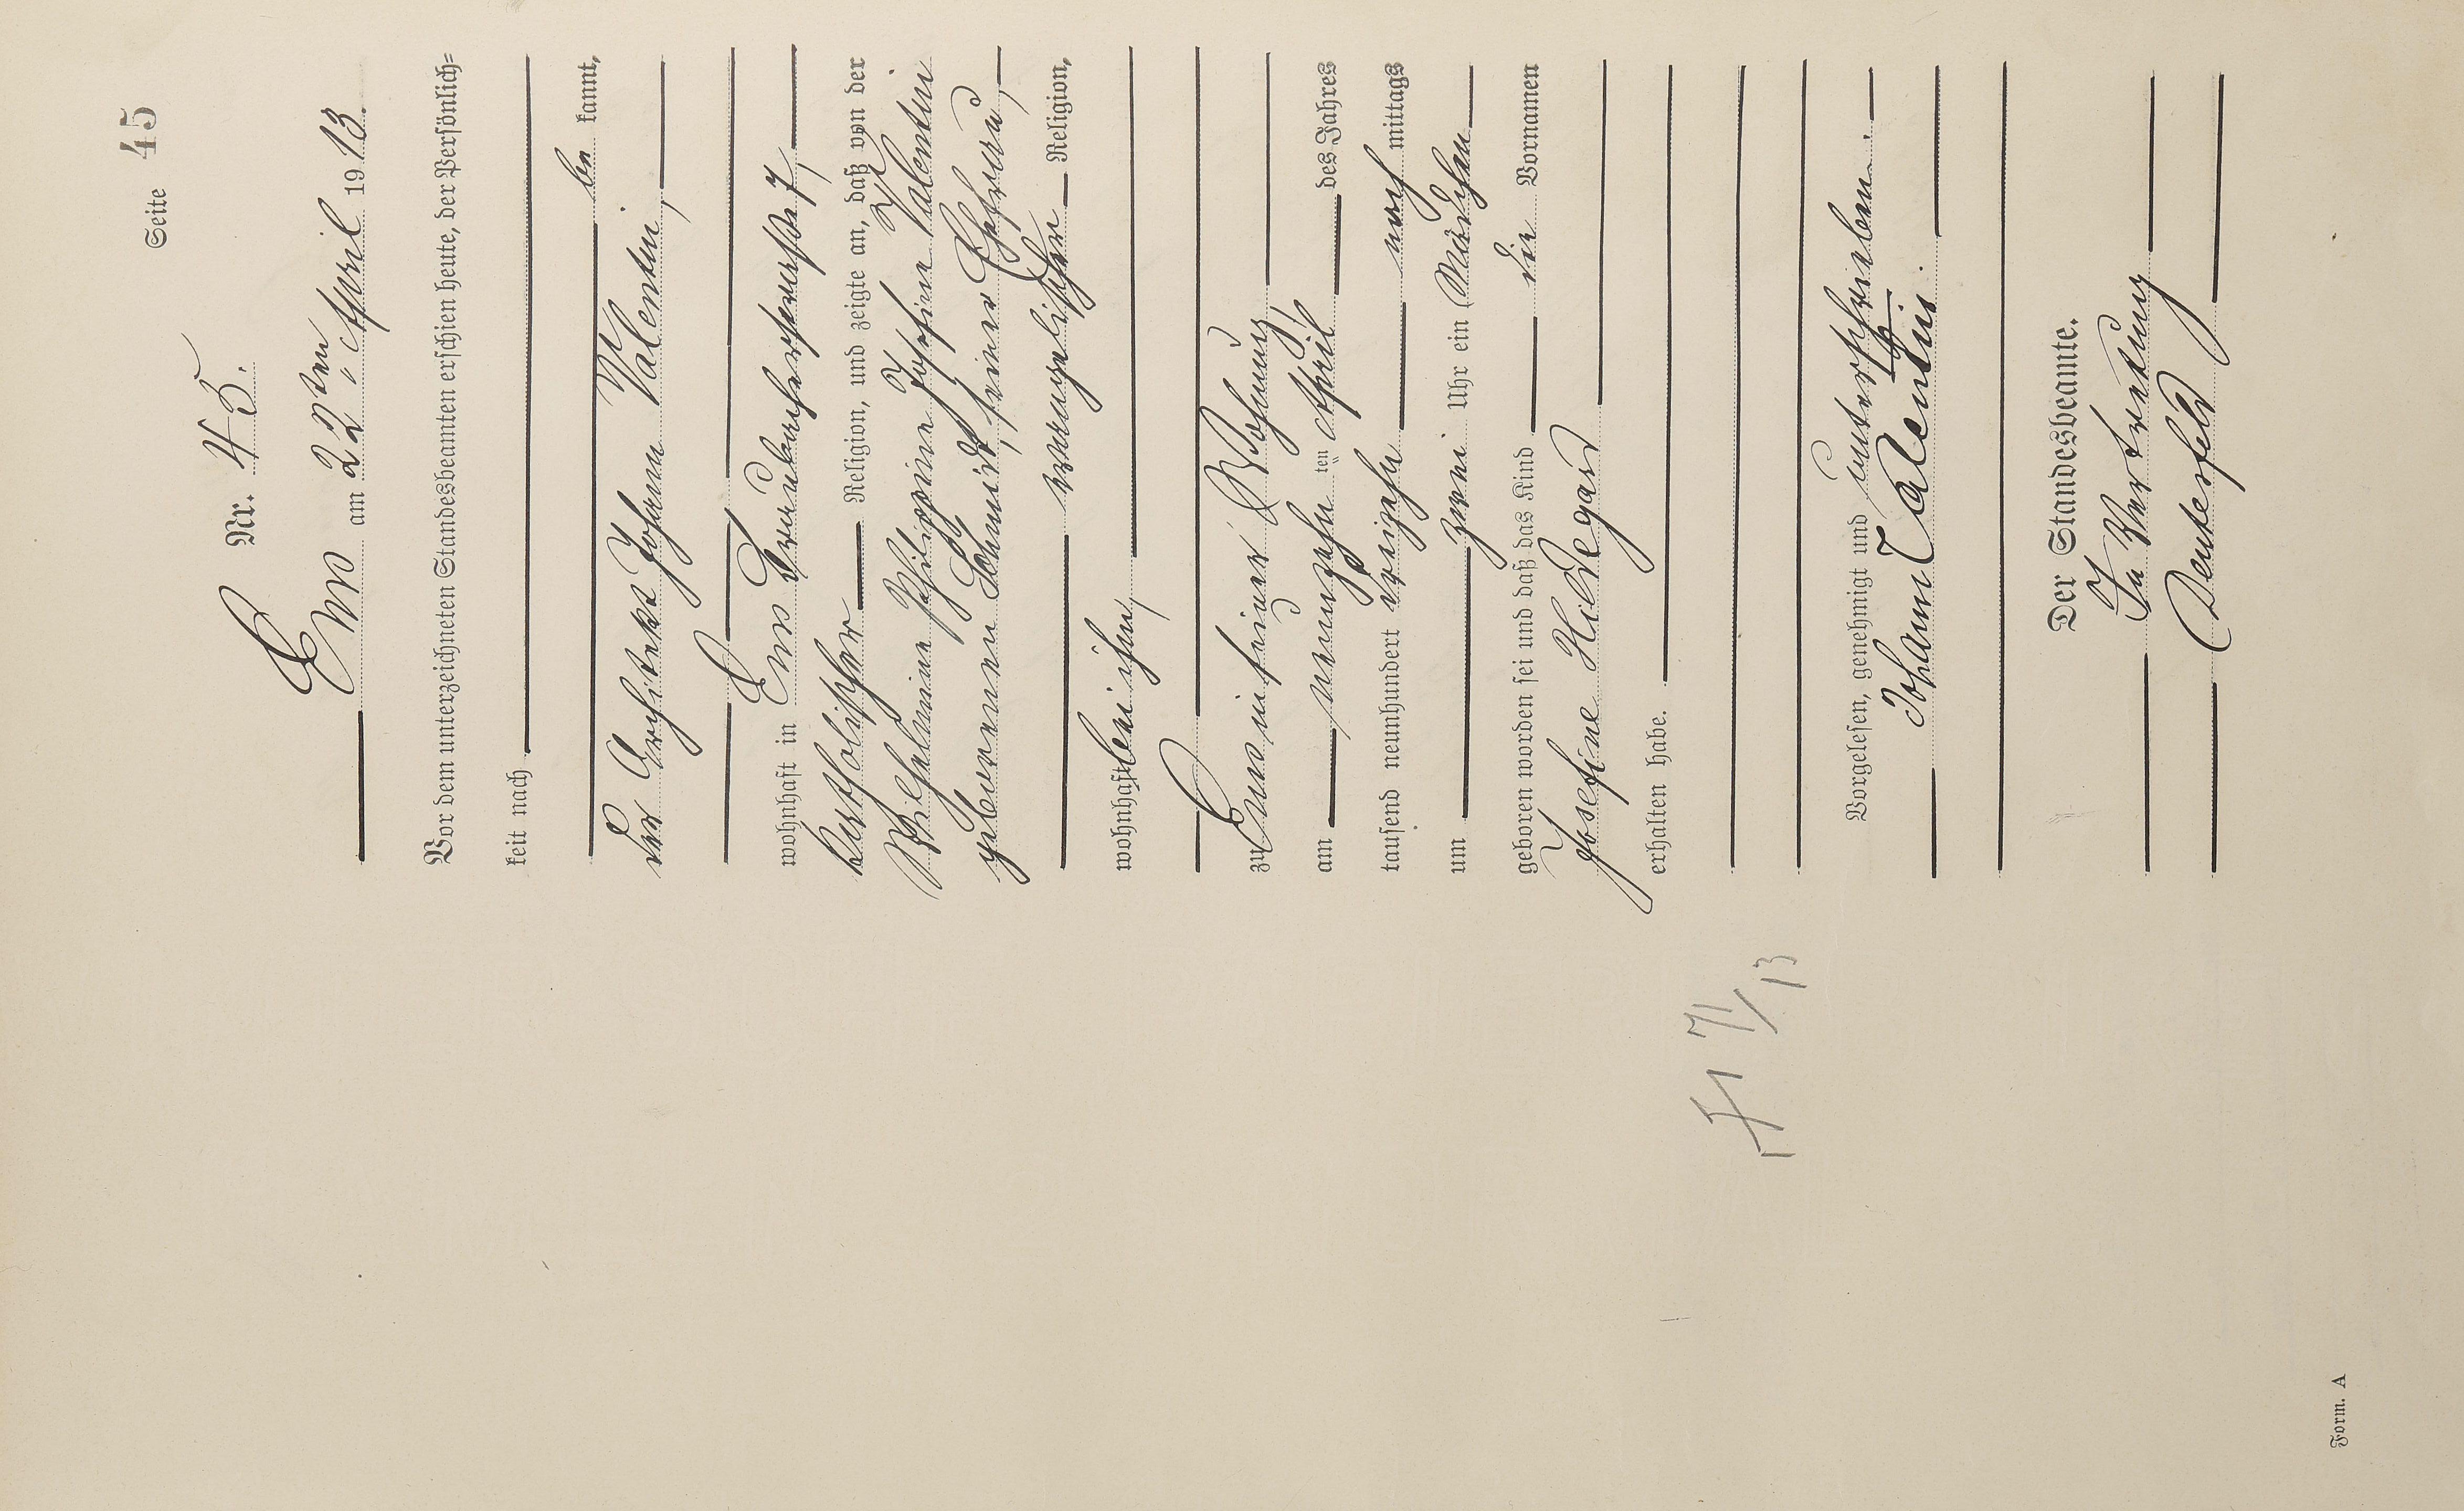 Seite 45
Nr. 45.
Ems am 22ten „ April 1913.
Vor dem unterzeichneten Standesbeamten erschien heute, der Persönlich=
keit nach
be kannt,
der Architekt Johann Valentin,
wohnhaft in Ems Braubacherstraße 7,
katholischer Religion, und zeigte an, daß von der
Wilhelmine Philippine Josefine Valentin
geborenen Schmidt, seiner Ehefrau,
evangelischer Religion,
wohnhaft bei ihm,
zu Ems in seiner Wohnung,
am neunzehn ten April des Jahres
tausend neunhundert dreizehn nach mittags
um zwei Uhr ein Mädchen
geboren worden sei und daß das Kind die Vornamen
Josefine Hildegard
erhalten habe.
Vorgelesen, genehmigt und unterschrieben.
Johann Valentin.
Der Standesbeamte.
In Vertretung
7/
13
Form. A